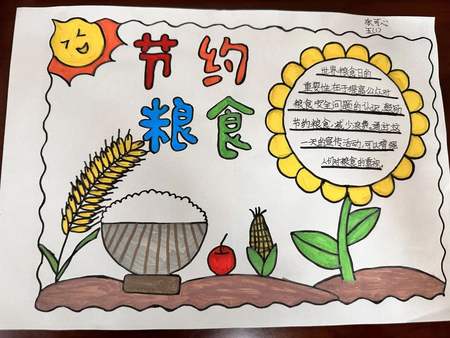 节约
粮食
世界粮食日的
重要性在于提高公众对
粮食安全问题的认识,鼓励
节约粮食,减少浪费,通过这
一天的宣传活动,可以增强
人们对粮食的重视。